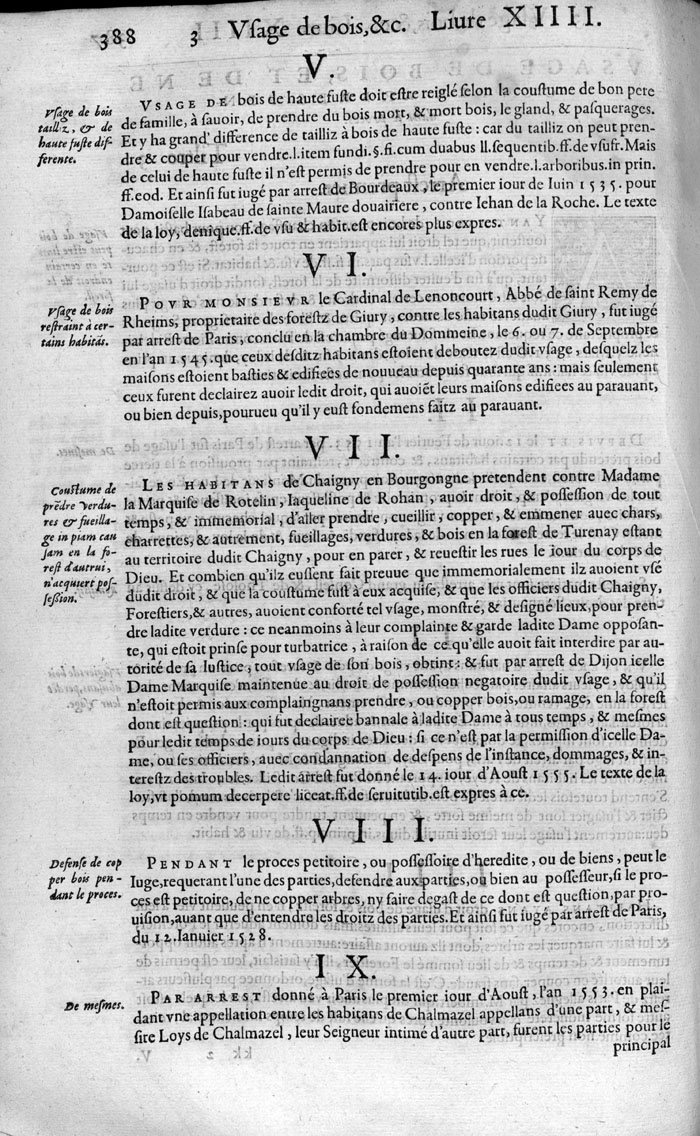 388 3 Vsage de bois, &c. Liure XIIII.
V.
Vsage de bois
tailliz, & de
haute fuste dif-
ferente.
VSAGE DE bois de haute fuste doit estre reiglé selon la coustume de bon pere
de famille, à sauoir, de prendre du bois mort, & mort bois, le gland, & pasquerages.
Et y ha grand' difference de tailliz à bois de haute fuste : car du tailliz on peut pren-
dre & couper pour vendre.l.item fundi.§.fi.cum duabus ll.sequentib.ff.de vsufr. Mais
de celui de haute fuste il n'est permis de prendre pour en vendre.l.arboribus.in prin.
ff.eod. Et ainsi fut iugé par arrest de Bourdeaux, le premier iour de Iuin 1535. pour
Damoiselle Isabeau de sainte Maure douairiere, contre Iehan de la Roche. Le texte
de la loy, denique.ff.de vsu & habit.est encores plus expres.
VI.
Vsage de bois
restraint à cer-
tains habitãs.
POVR MONSIEVR le Cardinal de Lenoncourt, Abbé de saint Remy de
Rheims, proprietaire des forestz de Giury, contre les habitans dudit Giury, fut iugé
par arrest de Paris, conclu en la chambre du Dommeine, le 6. ou 7. de Septembre
en l'an 1545. que ceux desditz habitans estoient deboutez dudit vsage, desquelz les
maisons estoient basties & edifiees de nouueau depuis quarante ans : mais seulement
ceux furent declairez auoir ledit droit, qui auoiẽt leurs maisons edifiees au parauant,
ou bien depuis, pourueu qu'il y eust fondemens faitz au parauant.
VII.
Coustume de
prẽdre verdu-
res & fueilla-
ge in piam cau
sam en la fo-
rest d'autrui,
n'acquiert pos-
session.
LES HABITANS de Chaigny en Bourgongne pretendent contre Madame
la Marquise de Rotelin, Iaqueline de Rohan, auoir droit, & possession de tout
temps, & immemorial, d'aller prendre, cueillir, copper, & emmener auec chars,
charrettes, & autrement, fueillages, verdures, & bois en la forest de Turenay estant
au territoire dudit Chaigny, pour en parer, & reuestir les rues le iour du corps de
Dieu. Et combien qu'ilz eussent fait preuue que immemorialement ilz auoient vsé
dudit droit, & que la coustume fust à eux acquise, & que les officiers dudit Chaigny,
Forestiers, & autres, auoient conforté tel vsage, monstré, & designé lieux, pour pren-
dre ladite verdure : ce neanmoins à leur complainte & garde ladite Dame opposan-
te, qui estoit prinse pour turbatrice, à raison de ce qu'elle auoit fait interdire par au-
torité de sa Iustice, tout vsage de son bois, obtint: & fut par arrest de Dijon icelle
Dame Marquise maintenue au droit de possession negatoire dudit vsage, & qu'il
n'estoit permis aux complaingnans prendre, ou copper bois, ou ramage, en la forest
dont est question : qui fut declairee bannale à ladite Dame à tous temps, & mesmes
pour ledit temps de iours du corps de Dieu : si ce n'est par la permission d'icelle Da-
me, ou ses officiers, auec condannation de despens de l'instance, dommages, & in-
terestz des troubles. Ledit arrest fut donné le 14. iour d'Aoust 1555. Le texte de la
loy, vt pomum decerpere liceat.ff.de seruitutib.est expres à ce.
VIII.
Defense de cop
per bois pen-
dant le proces.
PENDANT le proces petitoire, ou possessoire d'heredite, ou de biens, peut le
Iuge, requerant l'une des parties, defendre aux parties, ou bien au possesseur, si le pro-
ces est petitoire, de ne copper arbres, ny faire degast de ce dont est question, par pro-
uision, auant que d'entendre les droitz des parties. Et ainsi fut iugé par arrest de Paris,
du 12. Ianuier 1528.
IX.
De mesmes.
PAR ARREST donné à Paris le premier iour d'Aoust, l'an 1553. en plai-
dant vne appellation entre les habitans de Chalmazel appellans d'une part, & mes-
sire Loys de Chalmazel, leur Seigneur intimé d'autre part, furent les parties pour le
principal